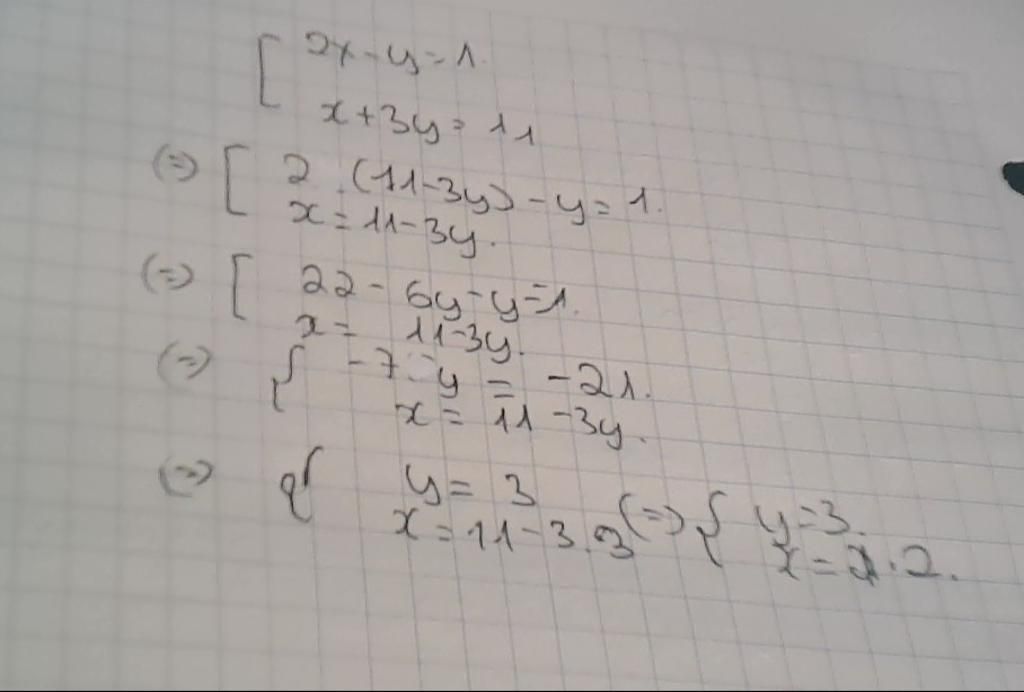 [ 2x - y = 1.
x + 3y = 11
(=) [ 2 . (11 - 3y) - y = 1.
x = 11 - 3y.
(=) [ 22 - 6y - y = 1.
x = 11 - 3y.
(=) { -7 y = -21.
x = 11 - 3y.
(=) { y = 3
x = 11 - 3 . 3 (=) { y = 3.
x = 2.